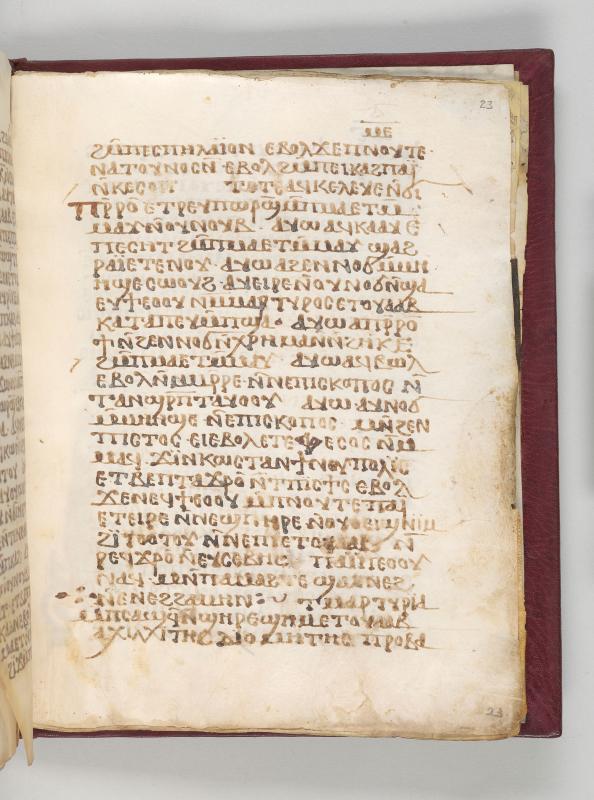 23
ⲙⲉ
ϩⲙⲡⲉⲥⲡⲏⲗⲁⲓⲟⲛ ⲉⲃⲟⲗϫⲉⲡⲛⲟⲩⲧⲉ
ⲛⲁⲧⲟⲩⲛⲟⲥⲛ ⲉⲃⲟⲗϩⲙⲡⲉⲓⲕⲁϩⲡⲁⲓ
ⲛⲕⲉⲥⲟⲡ ⲧⲟⲧⲉⲁϥⲕⲉⲗⲉⲩⲉⲛϭⲓ
ⲡⲣⲣⲟ ⲉⲧⲣⲉⲩⲡⲱⲣϣ
ⲙⲁⲩ ⲛⲟⲩⲛⲟⲩⲃ ⲁⲩⲱⲁϥⲕⲁⲁⲩ ⲉ
ⲡⲉⲥⲏⲧ ϩⲙⲡⲙⲁⲉⲧⲙⲙⲁⲩ ϣⲁϩ
ⲣⲁⲓⲉⲧⲉⲛⲟⲩ ⲁⲩⲱⲁϩⲉⲛⲛⲟϭⲙⲙⲏ
ⲏϣⲉⲥⲱⲟⲩϩ ⲁⲩⲉⲓⲣⲉⲛⲟⲩⲛⲟϭⲛϣⲁ
ⲉⲩϯⲉⲟⲟⲩ ⲛⲙⲙⲁⲣⲧⲩⲣⲟⲥⲉⲧⲟⲩⲁⲁⲃ
ⲕⲁⲧⲁⲡⲉⲩⲙⲡϣⲁ ⲁⲩⲱⲁⲡⲣⲣⲟ
ϯ ⲛϩⲉⲛⲛⲟϭⲛⲭⲣⲏⲙⲁⲛⲛϩⲏⲕⲉ
ϩⲙⲡⲙⲁⲉⲧⲙⲙⲁⲩ ⲁⲩⲱⲁϥⲃⲱⲗ
ⲉⲃⲟⲗⲛⲙⲙⲣⲣⲉ ⲛⲛⲉⲡⲓⲥⲕⲟⲡⲟⲥ ⲛ
ⲧⲁⲛϣⲣⲡⲧⲁⲩⲟⲟⲩ ⲁⲩⲱ ⲁⲩⲛⲟϭ
ⲙⲙⲏⲏϣⲉ ⲛⲉⲡⲓⲥⲕⲟⲡⲟⲥ ⲙⲛϩⲉⲛ
ⲡⲓⲥⲧⲟⲥ ⲉⲓⲉⲃⲟⲗⲉⲧⲉⲫⲉⲥⲟⲥ ⲛⲙ
ⲙⲁϥ ϫⲓⲛⲕⲱⲥⲧⲁⲛϯⲛⲟⲩⲡⲟⲗⲓⲥ
ⲉⲧⲃⲉⲡⲧⲁϫⲣⲟ ⲛⲧⲡⲓⲥϯⲥ ⲉⲃⲟⲗ
ϫⲉⲛⲉⲩϯⲉⲟⲟⲩ ⲙⲡⲛⲟⲩⲧⲉⲡⲁⲓ
ⲉⲧⲉⲓⲣⲉ ⲛⲛⲉϣⲡⲏⲣⲉ ⲛⲟⲩⲟⲉⲓϣⲛⲓⲙ
ϩⲓⲧⲟⲟⲧⲟⲩ ⲛⲛⲉⲡⲉⲧⲟⲩⲁⲁⲃ ⲛ
ⲣⲉϥϫⲣⲟ ⲛⲉⲩⲥⲉⲃⲏⲥ ⲡⲁⲓⲡⲉⲟⲟⲩ
ⲛⲁϥ ⲙⲛⲡⲁⲙⲁϩⲧⲉ ϣⲁⲛⲉϩ
ⲛⲉⲛⲉϩϩⲁⲙⲏⲛ ⲧⲙⲁⲣⲧⲩⲣⲓⲁ
ⲙⲡⲥⲁϣϥⲛϣⲏⲣⲉϣⲏⲙⲉⲧⲟⲩⲁⲁⲃ
ⲁⲭⲓⲗⲗⲓⲧⲏⲥ ⲇⲓⲟⲙⲏⲧⲏⲥ ⲡⲣⲟⲃⲁ
23